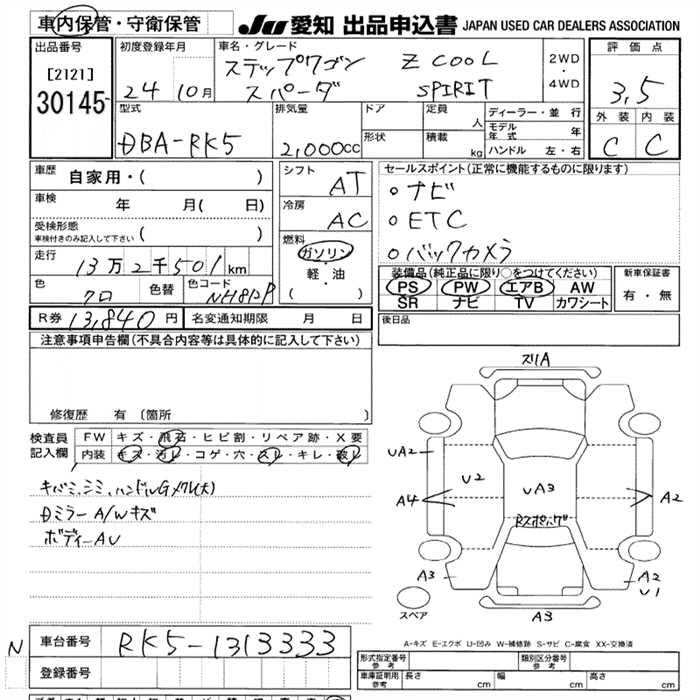 車内保管・守衛保管 JU 愛知 出品申込書 JAPAN USED CAR DEALERS ASSOCIATION
出品番号 初度登録年月 車名・グレード 評価点
[2121] 24年10月 ステップワゴン Z COOL 2WD
30145 スパーダ SPIRIT 4WD 3,5
型式 排気量 ドア 定員 人 ディーラー・並行 外装 内装
DBA-RK5 2,000cc 形状 積載 kg モデル年式 年 C C
ハンドル 左・右
車歴 自家用・( ) シフト AT セールスポイント(正常に機能するものに限ります)
車検 年 月( 日) 冷房 AC ○ナビ
受検形態 ○ETC
車検付きのみ記入して下さい ( ) 燃料 ○バックカメラ
走行 13万2千501km ガソリン 装備品(純正品に限り○をつけてください) 新車保証書
色 クロ 色替 色コード NH812P 軽・油 PS PW エアB AW 有・無
( ) SR ナビ TV カワシート
R券 13,840円 名変通知期限 月 日 後日品
注意事項申告欄(不具合内容等は具体的に記入して下さい)
修復歴 有 〔箇所 〕
検査員 FW キズ・飛石・ヒビ割・リペア跡・X要
記入欄 内装 キズ・汚レ・コゲ・穴・スレ・キレ・破レ
キバミ、シミ、ハンドルGメクレ(大)
Dミラー A/Wキズ
ボディーAU
スリA
UA2
U2
UA3
A4
A2
Rスポイング
A3
A2
U1
スペア
A3
A-キズ E-エクボ U-凹み W-補修跡 S-サビ C-腐食 XX-交換済
N 車台番号 RK5-1313333
登録番号
形式指定番号 参考 類別区分番号 参考
車庫証明用 参考 長さ cm 幅 cm 高さ cm